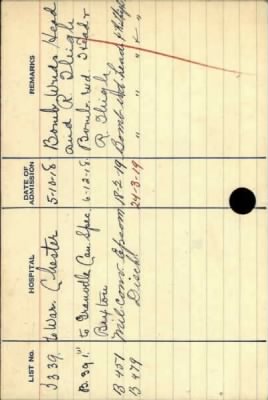 LIST No. HOSPITAL DATE OF ADMISSION REMARKS
J339. to War. Chester 5-10-18 Bomb Wnds Head
and R. Thigh
B. 391. to Granville Can Spec. 6-12-18 Bomb. Wd. Head &
Buxton R. Thigh
B 451 Mil. Conv. Epsom 18-2-19 Bomb Wd. Head & R. Thigh
B 479 Disch. 24-3-19 " " " "